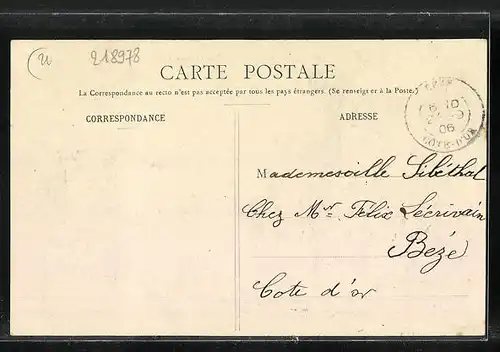 u
218978
CARTE POSTALE
La Correspondance au recto n'est pas acceptée par tous les pays étrangers. (Se renseigner à la Poste.)
CORRESPONDANCE
ADRESSE
10
06
CÔTE-D'OR
Mademoiselle Libéthal
Chez Mr Félix Lécrivain
Bèze
Cote d'or